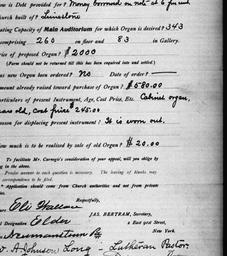 is Debt provided for? Money borrowed on note at 6 per cent
hurch built of? Limestone
ating Capacity of Main Auditorium for which Organ is desired? 343
comprising 260 on floor and 83 in Gallery.
Price of proposed Organ? $2000
(Form should not be returned till this has been inquired into and settled.)
as new Organ been ordered? No Date of order?
mount already raised toward purchase of Organ? $580.00
rticulars of present Instrument, Age, Cost Price, Etc. Cabinet organ,
ears old, cost price
eason for displacing present Instrument? It is worn out.
ow much is to be realized by sale of old Organ? $20.00
To facilitate Mr. Carnegie's consideration of your appeal, will you oblige by
ng in the above.
Precise answer to each question is necessary. The leaving of blanks may
correspondence to be filed.
* Application should come from Church authorities and not from private
ties.
Respectfully,
JAS. BERTRAM, Secretary,
2 East 91st Street,
New York.
Eli
l Designation Elder
Pa
A Johnson Long - Lutheran Pastor